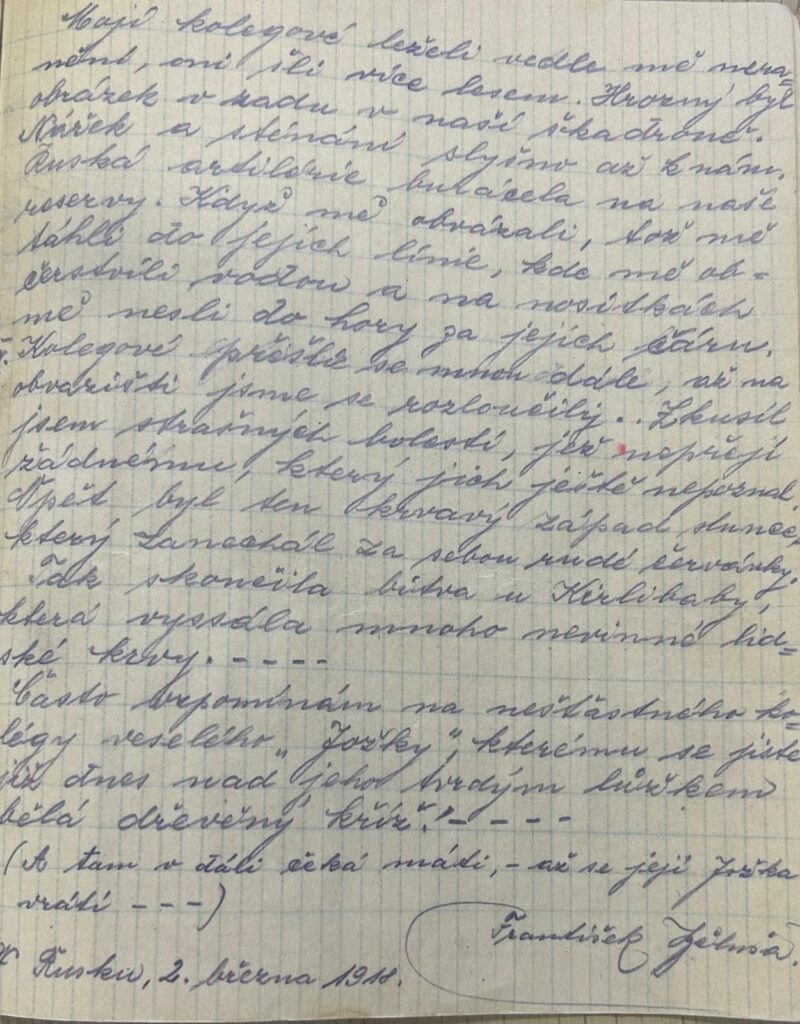 Mojí kolegové leželi vedle mě nera=
nění, oni šli více lesem. Hrozný byl
obrázek v zadu v naší škadroně.
Nářek a sténání slyšno až k nám.
Ruská artilérie burácela na naše
reservy. Když mě obvázali, tož mě
táhli do jejich línie, kde mě ob=
čerstvili vodou a na nosítkách
mě nesli do hory za jejich čáru.
Kolegové přišli se mnou dále, až na
obvazišti jsme se rozloučily. Zkusil
jsem strašných bolestí, jež nepřejí
žádnému, který jich ještě nepoznal.
Opět byl ten krvavý západ slunce,
který zanechál za sebou rudé červánky.
Tak skončila bitva u Kirlibaby,
která vyssála mnoho nevinné lid=
ské krvy. - - - -
Často vzpomínám na nešťastného ko=
légy veselého „Jožky", kterému se jistě
již dnes nad jeho tvrdým lůžkem
bělá dřevěný kříž! - - - -
(A tam v dáli čeká máti, - až se její Jožka
vrátí - - -)
František
V Rusku, 2. března 1918.